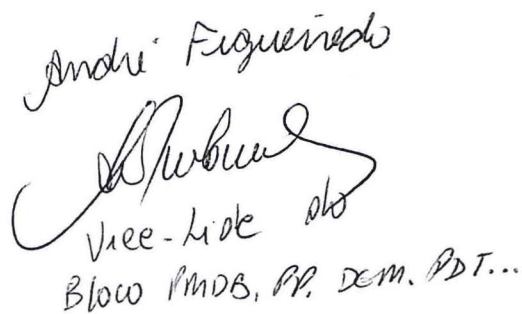 André Figueiredo
Vice-Líde do
Bloco PMDB, PP, DEM, PDT...